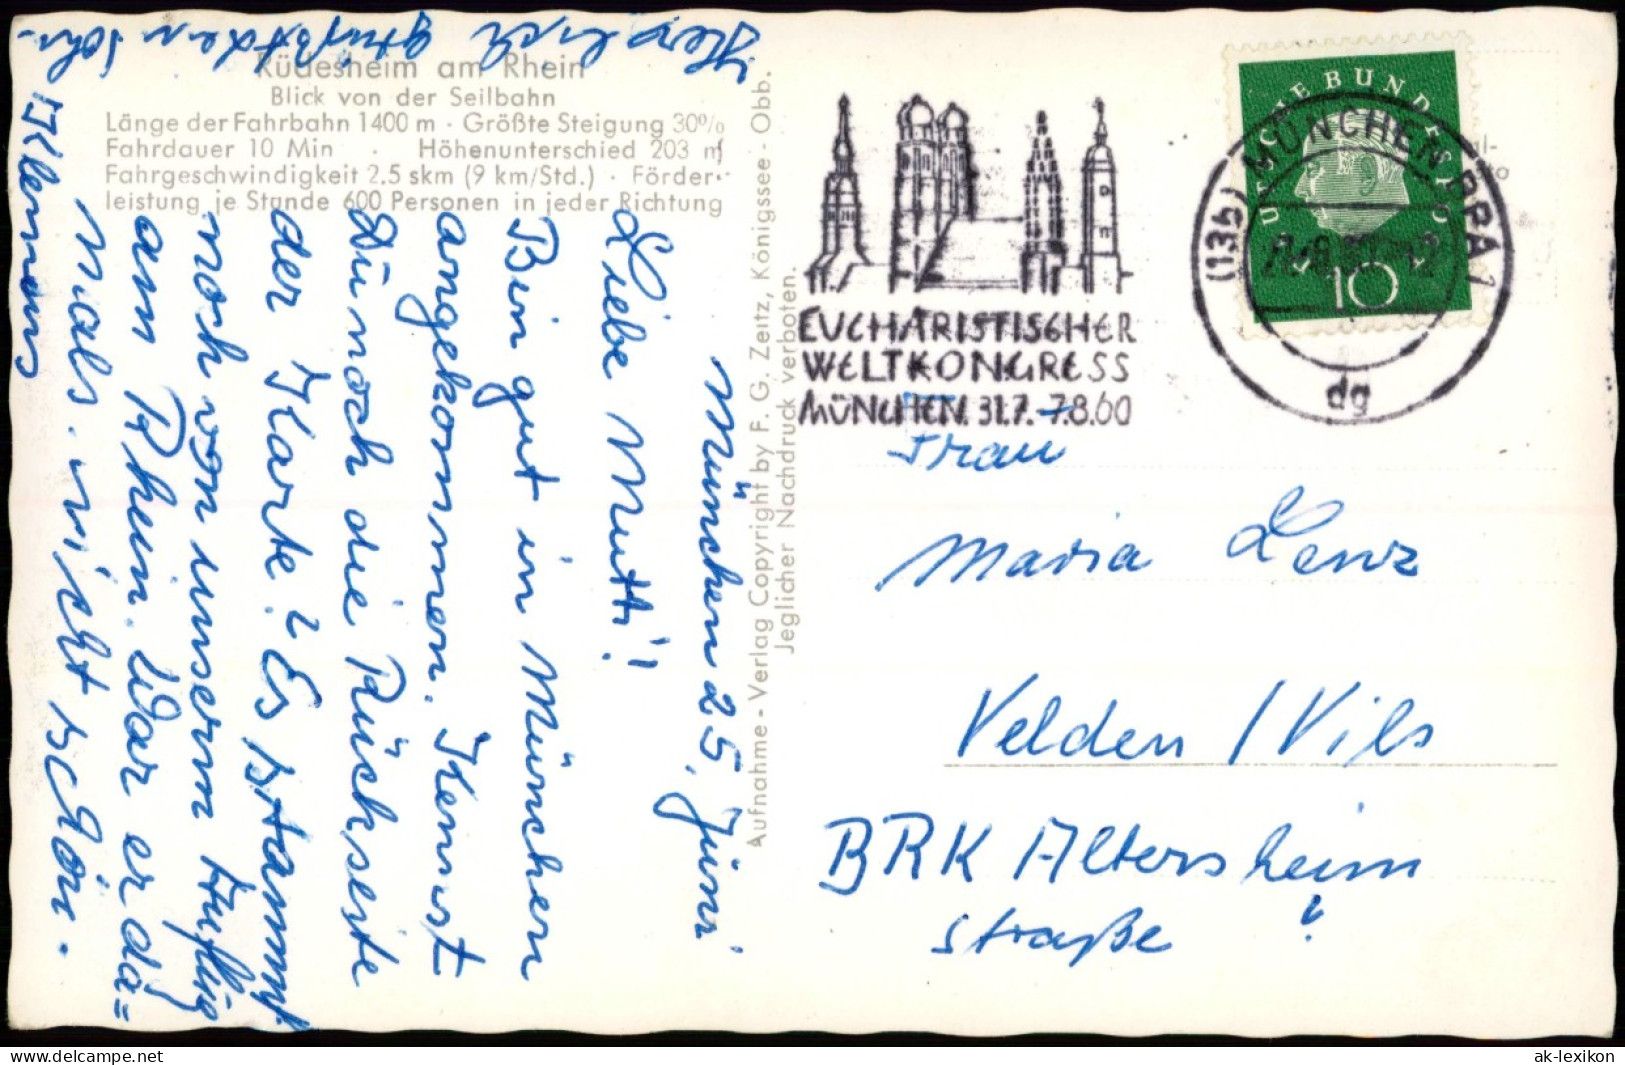 Rüdesheim am Rhein
Blick von der Seilbahn
Länge der Fahrbahn 1400 m · Größte Steigung 30%
Fahrdauer 10 Min · Höhenunterschied 203 m
Fahrgeschwindigkeit 2,5 skm (9 km/Std.) · Förder-
leistung je Stunde 600 Personen in jeder Richtung
München 25. Juni
Liebe Mutti!
Bin gut in München
angekommen. Kennst
Du noch die Rückseite
der Karte? Es stammt
noch von unserm Ausflug
am Rhein. War er da=
mals nicht schön.
Herzlich grüßt dein Sohn
Klemens
Aufnahme - Verlag Copyright by F. G. Zeitz, Königssee - Obb.
Jeglicher Nachdruck verboten.
EUCHARISTISCHER
WELTKONGRESS
MÜNCHEN 31.7.-7.8.60
(13b) MÜNCHEN BPA 1
dg
DEUTSCHE BUNDESPOST
10
Frau
Maria Lenz
Velden / Vils
BRK Altersheim
Straße ?
ak-lexikon